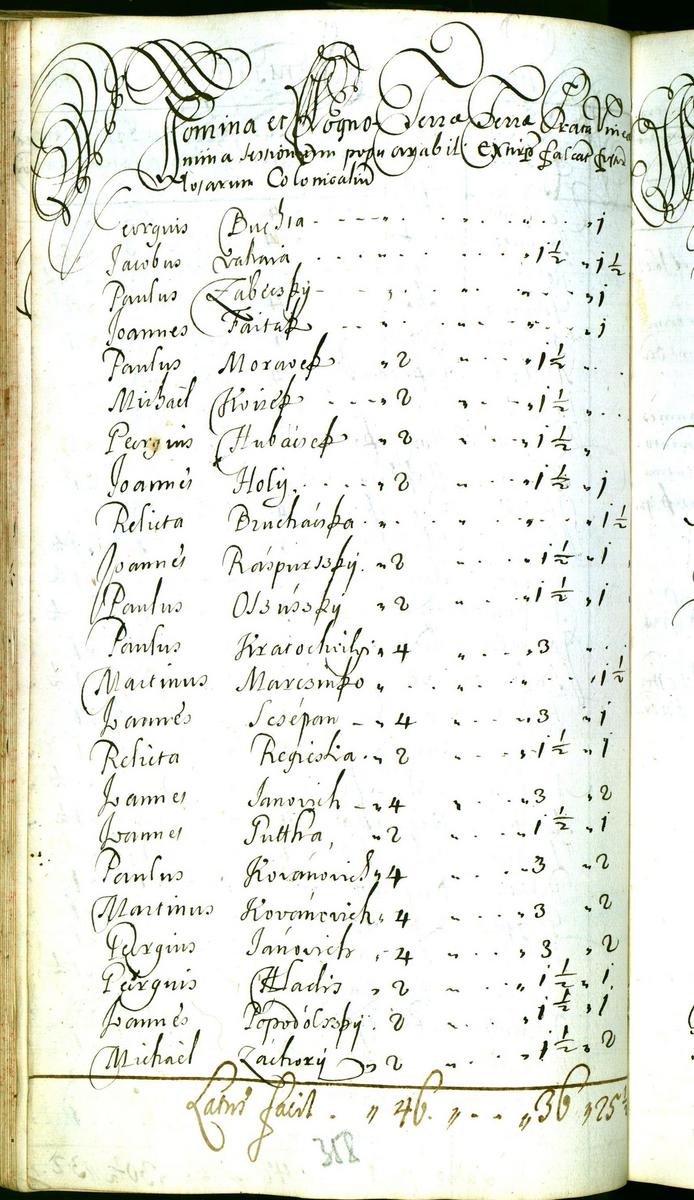 Nomina et Cogno Terræ Terræ Prata Vineæ
mina Sessionum popu arabil: Extirp falcat fossor
losarum Colonicaliu
Georgius Buchta - - - „ „ „ 1
Jacobus Vahaia „ 1 ½ „ 1 ½
Paulus Zabecsky „ „ „ 1
Joannes Faitak „ „ „ 1
Paulus Moravek „ 2 „ „ 1 ½ „
Michaël Kvisek „ 2 „ „ 1 ½ „
Georgius Hubácsek „ 2 „ „ 1 ½ „
Joannes Holy „ 2 „ „ 1 ½ „ 1
Relicta Bruchácska „ „ „ 1 ½
Joannes Ráspurszky „ 2 „ „ 1 ½ „ 1
Paulus Oszúszky „ 2 „ „ 1 ½ „ 1
Paulus Kratochvil „ 4 „ „ 3 „
Martinus Marcsinko „ „ „ „ 1 ½
Joannes Scsépan „ 4 „ „ 3 „ 1
Relicta Regieslia „ 2 „ „ 1 ½ „ 1
Joannes Janovich „ 4 „ „ 3 „ 2
Joannes Puttha „ 2 „ „ 1 ½ „ 1
Paulus Kovanovich „ 4 „ „ 3 „ 2
Martinus Kováncvich „ 4 „ „ 3 „ 2
Georgius Janovich „ 4 „ „ 3 „ 2
Georgius Hladis „ 2 „ „ 1 ½ „ 1
Joannes Popodólszky „ 2 „ „ 1 ½ „ 1
Michaël Záchory „ 2 „ „ 1 ½ „ 2
Latus facit „ 46 „ „ 36 „ 25 ½
358